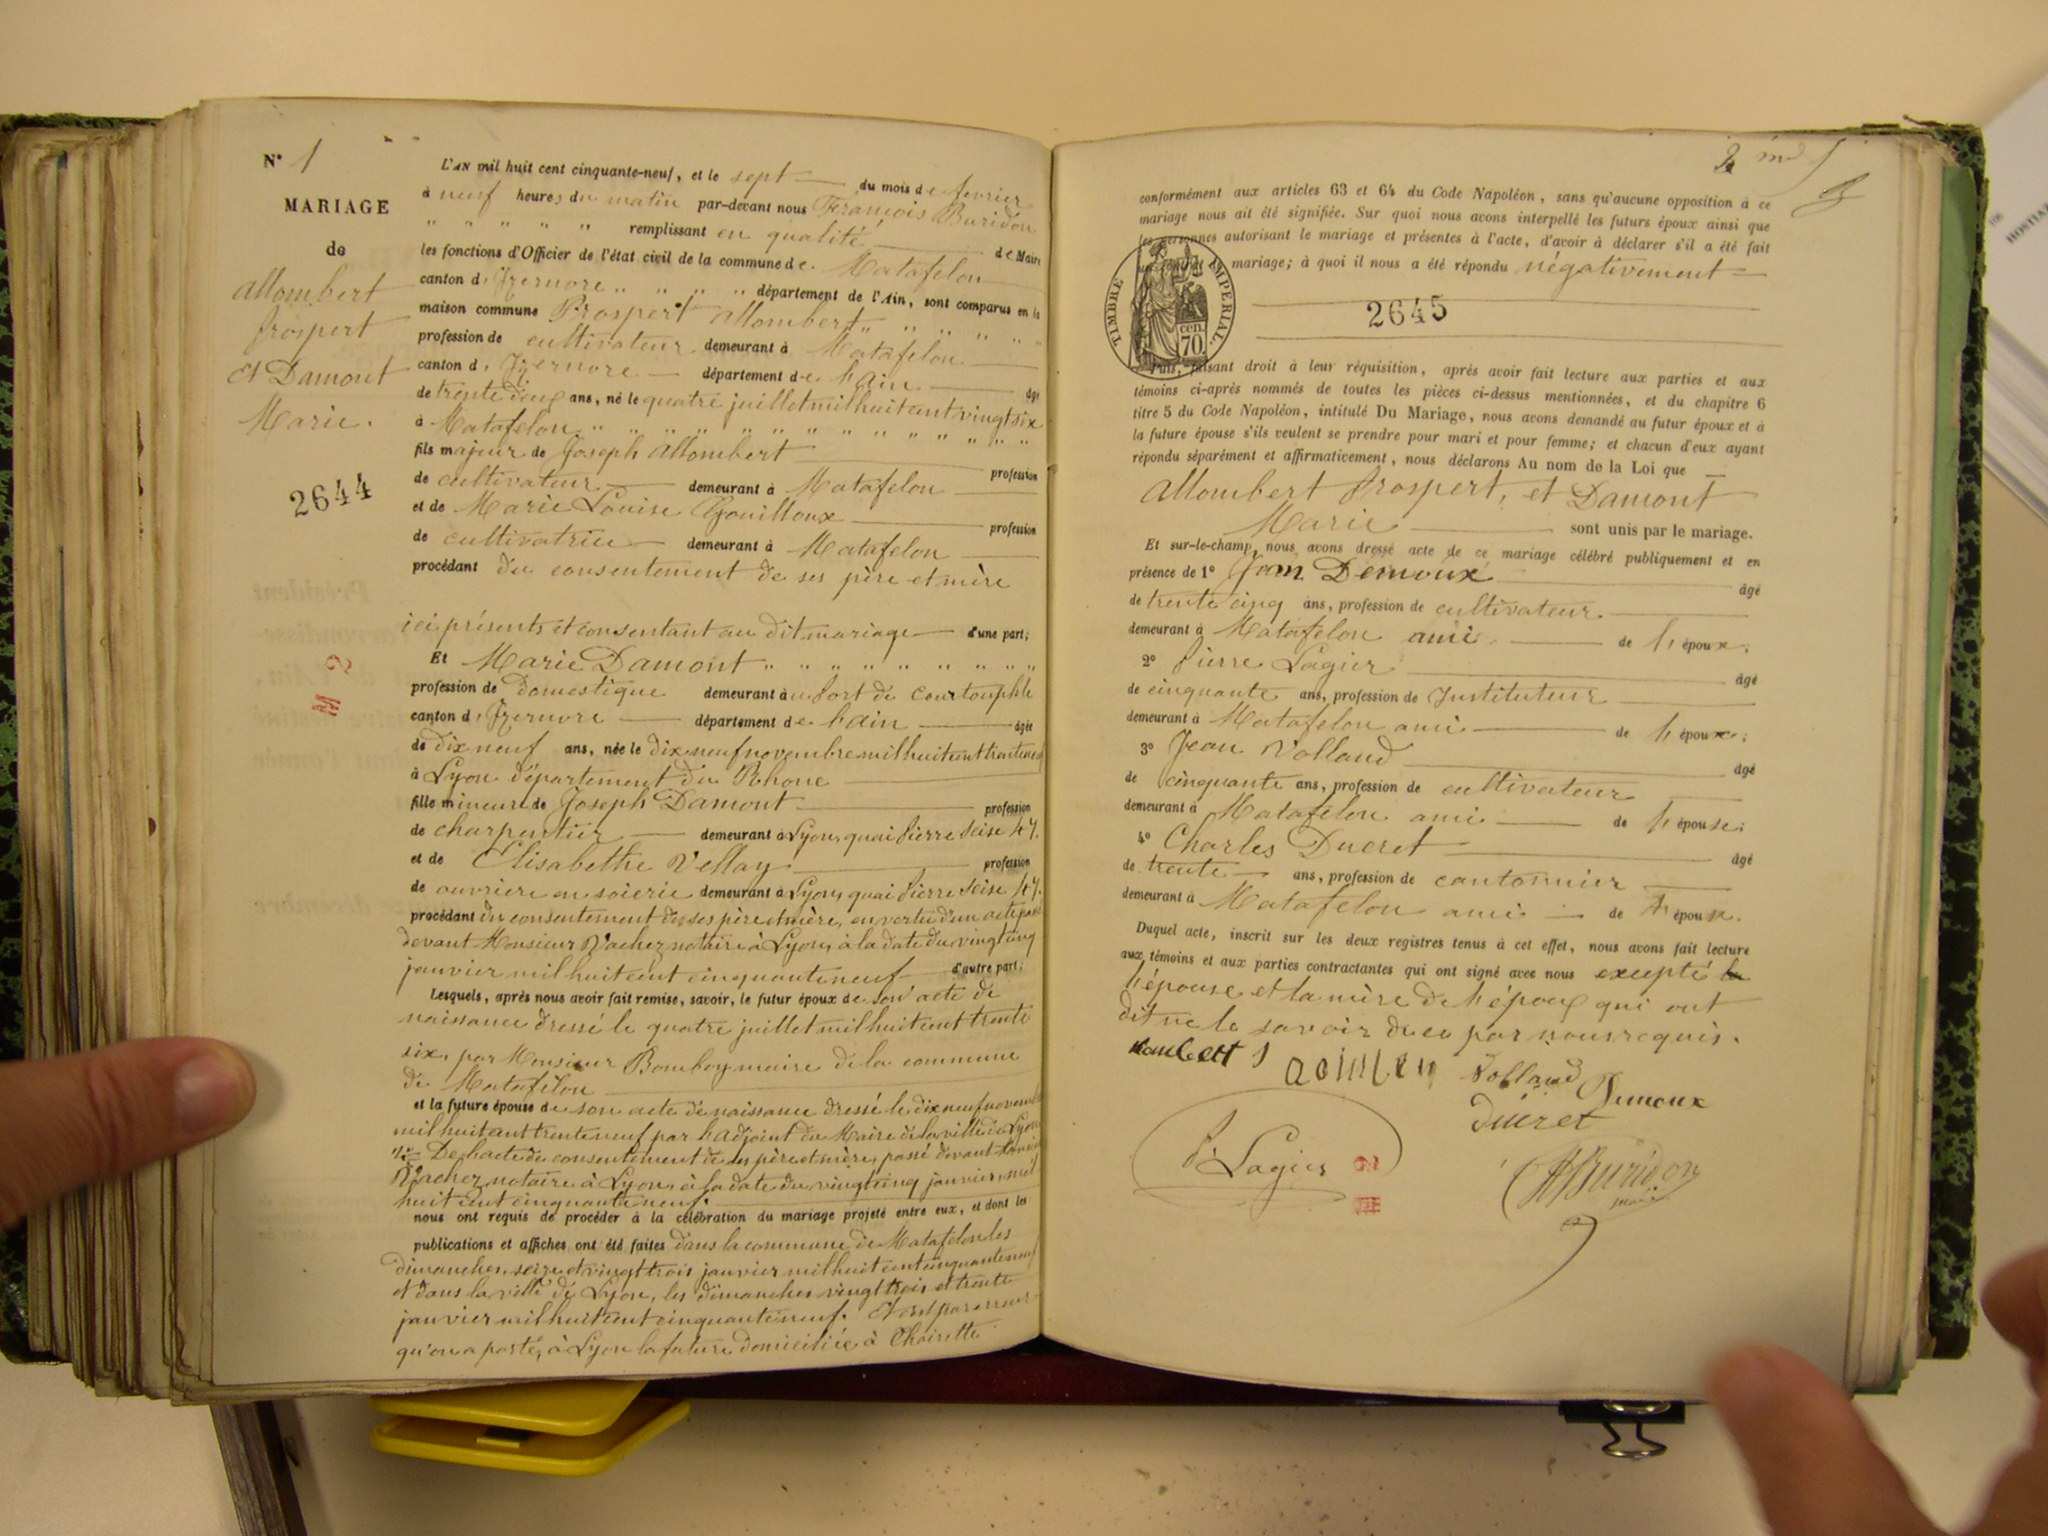 N° 1
MARIAGE
de
Allombert
Prospert
et Damont
Marie.
2644
L'AN mil huit cent cinquante-neuf, et le sept du mois de fevrier
à neuf heures du matin par-devant nous François Buridon
" " " " " remplissant en qualité de Maire
les fonctions d'Officier de l'état civil de la commune de Matafelon
canton d'Izernore " " " " département de l'Ain, sont comparus en la
maison commune Prospert Allombert " " " "
profession de cultivateur demeurant à Matafelon
canton d'Izernore département de l'ain âgé
de trente deux ans, né le quatre juillet mil huit cent vingt six
à Matafelon " " " " " " " " " " " "
fils majeur de Joseph Allombert profession
de cultivateur demeurant à Matafelon
et de Marie Louise Gouilloux profession
de cultivatrice demeurant à Matafelon
procédant du consentement de ses père et mère
ici présents et consentant au dit mariage d'une part;
Et Marie Damont " " " " " " " "
profession de domestique demeurant à
canton d'Izernore département de l'ain âgée
de dix neuf ans, née le dix neuf novembre mil huit cent trente neuf
à Lyon département du Rhone
fille mineure de Joseph Damont profession
de charpentier demeurant à Lyon, quai Pierre Seise 47.
et de Elisabethe Vellay profession
de ouvriere en soierie demeurant à Lyon, quai Pierre Seise 47.
procédant du consentement de ses père et mère, en vertu d'un acte passé
devant Monsieur Vachez notaire à Lyon, à la date du vingt cinq
janvier mil huit cent cinquante neuf d'autre part;
Lesquels, après nous avoir fait remise, savoir, le futur époux de son acte de
naissance dressé le quatre juillet mil huit cent trente
six, par Monsieur Bomboy maire de la commune
de Matafelon
et la future épouse de son acte de naissance dressé le dix neuf novembre
mil huit cent trente neuf par l'adjoint du Maire de la ville de Lyon
2° De l'acte de consentement de ses père et mère, passé devant
Vachez notaire à Lyon, à la date du vingt cinq janvier, mil
huit cent cinquante neuf.
nous ont requis de procéder à la célébration du mariage projeté entre eux, et dont les
publications et affiches ont été faites dans la commune de Matafelon les
dimanches, seize et vingt trois janvier mil huit cent cinquante neuf
et dans la ville de Lyon, les dimanches vingt trois et trente
janvier mil huit cent cinquante neuf. Et c'est par erreur
qu'on a porté, à Lyon la future domiciliée à Choirette
conformément aux articles 63 et 64 du Code Napoléon, sans qu'aucune opposition à ce
mariage nous ait été signifiée. Sur quoi nous avons interpellé les futurs époux ainsi que
les personnes autorisant le mariage et présentes à l'acte, d'avoir à déclarer s'il a été fait
un contrat de mariage; à quoi il nous a été répondu négativement
TIMBRE IMPERIAL.
cen. 70
2645
Puis, faisant droit à leur réquisition, après avoir fait lecture aux parties et aux
témoins ci-après nommés de toutes les pièces ci-dessus mentionnées, et du chapitre 6
titre 5 du Code Napoléon, intitulé Du Mariage, nous avons demandé au futur époux et à
la future épouse s'ils veulent se prendre pour mari et pour femme; et chacun d'eux ayant
répondu séparément et affirmativement, nous déclarons Au nom de la Loi que
Allombert Prospert, et Damont
Marie sont unis par le mariage.
Et sur-le-champ, nous avons dressé acte de ce mariage célébré publiquement et en
présence de 1° Jean Demoux âgé
de trente cinq ans, profession de cultivateur
demeurant à Matafelon ami de l'époux;
2° Pierre Lagier âgé
de cinquante ans, profession de Instituteur
demeurant à Matafelon ami de l'époux;
3° Jean Volland âgé
de cinquante ans, profession de cultivateur
demeurant à Matafelon ami de l'épouse;
4° Charles Ducret âgé
de trente ans, profession de cantonnier
demeurant à Matafelon ami de
Duquel acte, inscrit sur les deux registres tenus à cet effet, nous avons fait lecture
aux témoins et aux parties contractantes qui ont signé avec nous excepté
l'épouse et la mère de l'époux qui ont
dit ne le savoir de ce par nous requis.
Volland
Demoux
Ducret
P. Lagier
Buridon
maire